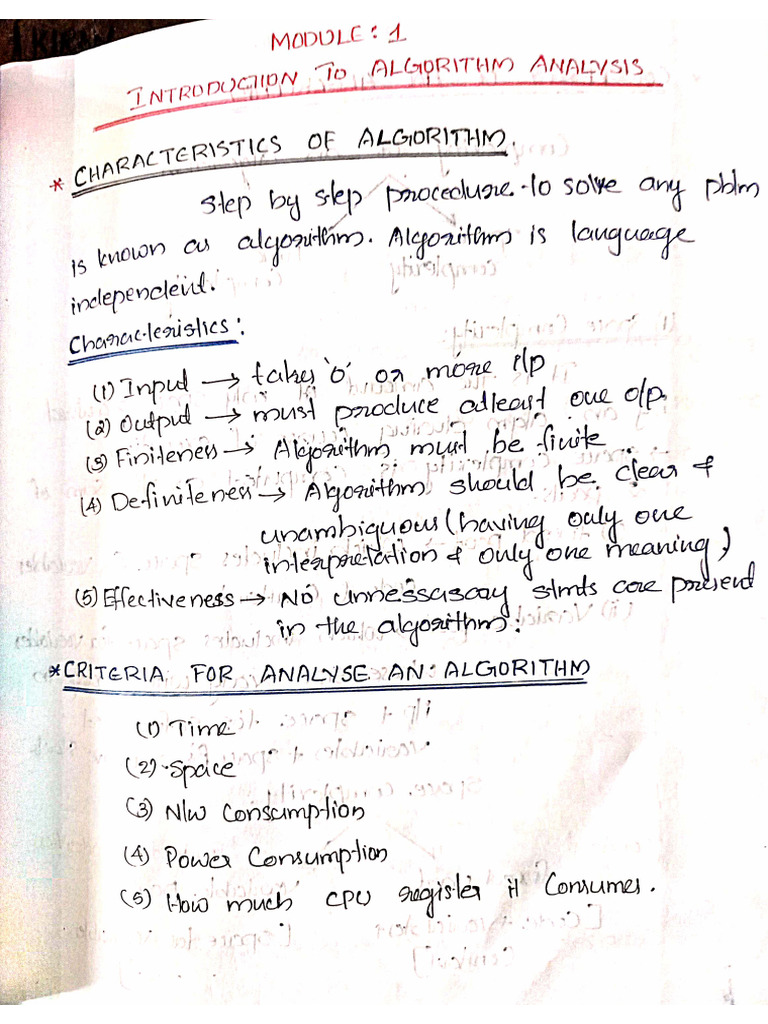 MODULE: 1
INTRODUCTION TO ALGORITHM ANALYSIS
* CHARACTERISTICS OF ALGORITHM.
step by step procedure to solve any pblm
is known as algorithm. Algorithm is language
independent.
Characteristics:
(1) Input → takes '0' or more i/p
(2) Output → must produce atleast one o/p.
(3) Finiteness → Algorithm must be finite
(4) Definiteness → Algorithm should be clear &
unambiguous (having only one
interpretation & only one meaning)
(5) Effectiveness → No unnessasary stmts are present
in the algorithm.
* CRITERIA FOR ANALYSE AN ALGORITHM
(1) Time
(2) Space
(3) N/w Consumption
(4) Power Consumption
(5) How much CPU register it Consumes.